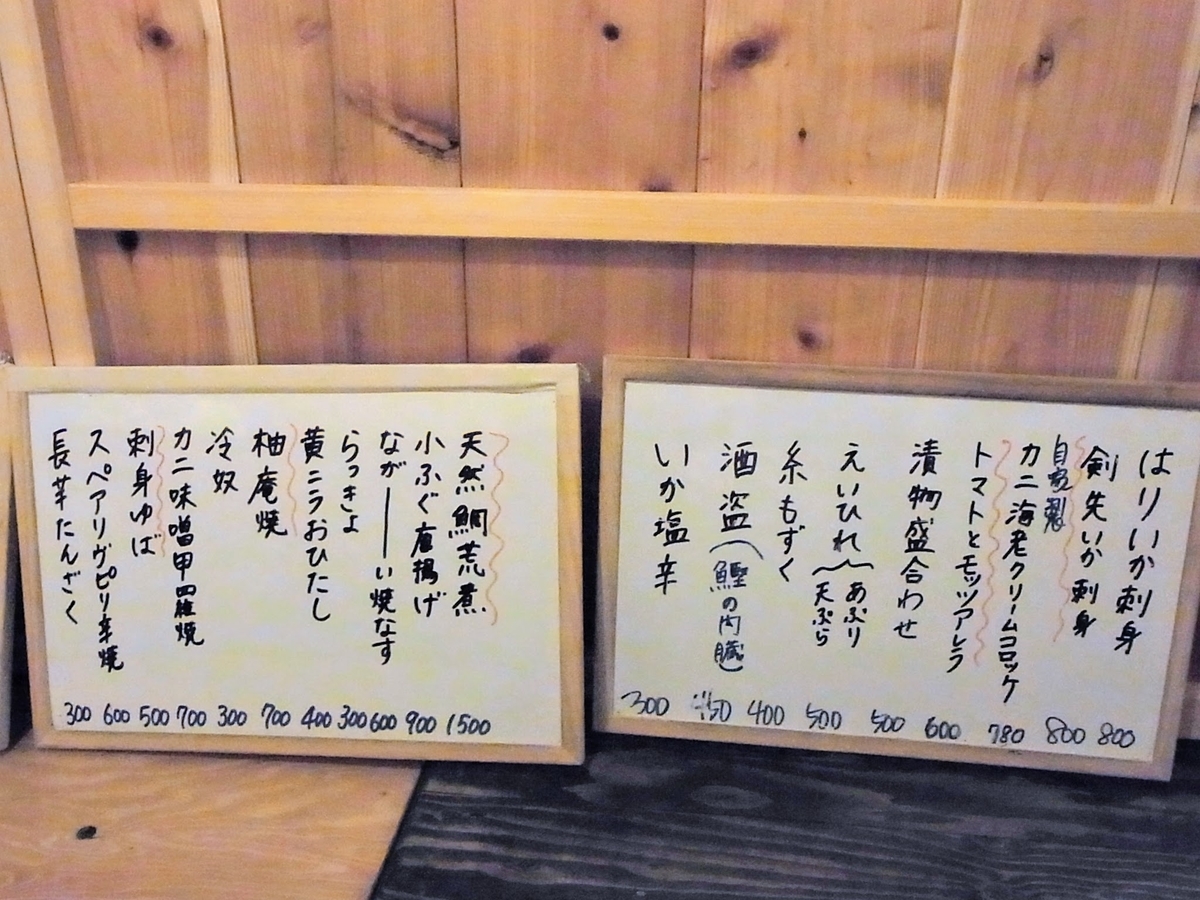 はりいか刺身
剣先いか刺身
自家製
カニ海老クリームコロッケ
トマトとモッツアレラ
漬物盛合わせ
えいひれ
あぶり
天ぷら
糸もずく
酒盗(鰹の内臓)
いか塩辛
300 450 400 500 500 600 780 800 800
天然鯛荒煮
小ふぐ唐揚げ
なが――い焼なす
らっきょ
黄ニラおひたし
柚庵焼
冷奴
カニ味噌甲羅焼
刺身ゆば
スペアリヴピリ辛焼
長芋たんざく
300 600 500 700 300 700 400 300 600 900 1500